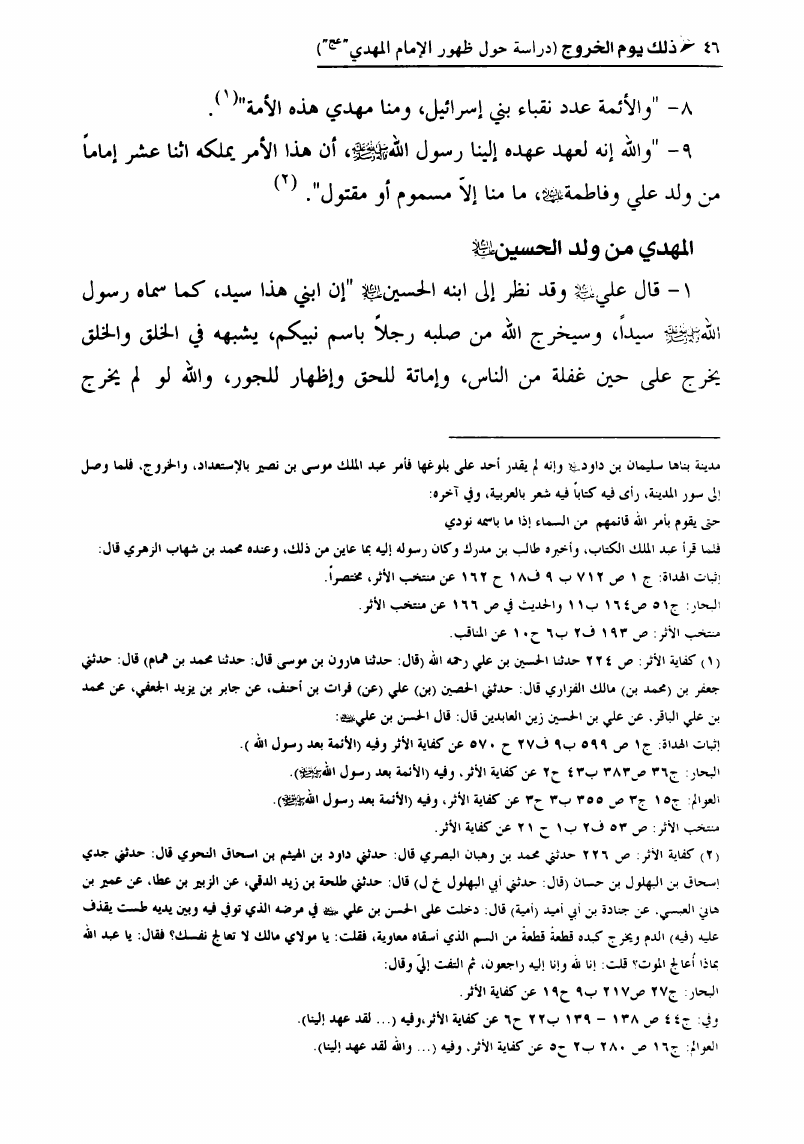 ٤٦ ذلك يوم الخروج (دراسة حول ظهور الإمام المهدي "عج")
٨- "والأئمة عدد نقباء بني إسرائيل، ومنا مهدي هذه الأمة"(١).
٩- "والله إنه لعهد عهده إلينا رسول اللهﷺ، أن هذا الأمر يملكه اثنا عشر إماماً
من ولد علي وفاطمة، ما منا إلاّ مسموم أو مقتول". (٢)
المهدي من ولد الحسين
١- قال علي وقد نظر إلى ابنه الحسين "إن ابني هذا سيد، كما سماه رسول
اللهﷺ سيداً، وسيخرج الله من صلبه رجلاً باسم نبيكم، يشبهه في الخلق والخلق
يخرج على حين غفلة من الناس، وإماتة للحق وإظهار للجور، والله لو لم يخرج
مدينة بناها سليمان بن داود وإنه لم يقدر أحد على بلوغها فأمر عبد الملك موسى بن نصير بالإستعداد، والخروج، فلما وصل
إلى سور المدينة، رأى فيه كتاباً فيه شعر بالعربية، وفي آخره:
حتى يقوم بأمر الله قائمهم من السماء إذا ما باسمه نودي
فلما قرأ عبد الملك الكتاب، وأخبره طالب بن مدرك وكان رسوله إليه بما عاين من ذلك، وعنده محمد بن شهاب الزهري قال:
إثبات الهداة: ج ١ ص ٧١٢ ب ٩ ف١٨ ح ١٦٢ عن منتخب الأثر، مختصراً.
البحار: ج٥١ ص١٦٤ ب١١ والحديث في ص ١٦٦ عن منتخب الأثر.
منتخب الأثر: ص ١٩٣ ف٢ ب٦ ح١٠ عن المناقب.
(١) كفاية الأثر: ص ٢٢٤ حدثنا الحسين بن علي رحمه الله (قال: حدثنا هارون بن موسى قال: حدثنا محمد بن همام) قال: حدثني
جعفر بن (محمد بن) مالك الفزاري قال: حدثني الحصين (بن) علي (عن) فرات بن أحنف، عن جابر بن يزيد الجعفي، عن محمد
بن علي الباقر، عن علي بن الحسين زين العابدين قال: قال الحسن بن علي:
إثبات الهداة: ج١ ص ٥٩٩ ب٩ ف٢٧ ح ٥٧٠ عن كفاية الأثر وفيه (الأئمة بعد رسول الله ).
البحار: ج٣٦ ص٣٨٣ ب٤٣ ح٢ عن كفاية الأثر، وفيه (الأئمة بعد رسول اللهﷺ).
العوالم: ج١٥ ج٣ ص ٣٥٥ ب٣ ح٣ عن كفاية الأثر، وفيه (الأئمة بعد رسول اللهﷺ).
منتخب الأثر: ص ٥٣ ف٢ ب١ ح ٢١ عن كفاية الأثر.
(٢) كفاية الأثر: ص ٢٢٦ حدثني محمد بن وهبان البصري قال: حدثني داود بن الهيثم بن اسحاق النحوي قال: حدثني جدي
إسحاق بن البهلول بن حسان (قال: حدثني أبي البهلول خ ل) قال: حدثني طلحة بن زيد الدقي، عن الزبير بن عطا، عن عمير بن
هاني العبسي، عن جنادة بن أبي أميد (أمية) قال: دخلت على الحسن بن علي في مرضه الذي توفي فيه وبين يديه طست يقذف
عليه (فيه) الدم ويخرج كبده قطعةً قطعةً من السم الذي أسقاه معاوية، فقلت: يا مولاي مالك لا تعالج نفسك؟ فقال: يا عبد الله
بماذا أُعالج الموت؟ قلت: إنا لله وإنا إليه راجعون، ثم التفت إليّ وقال:
البحار: ج٢٧ ص٢١٧ ب٩ ح١٩ عن كفاية الأثر.
وفي: ج٤٤ ص ١٣٨ – ١٣٩ ب٢٢ ح٦ عن كفاية الأثر،وفيه (... لقد عهد إلينا).
العوالم: ج١٦ ص ٢٨٠ ب٢ ح٥ عن كفاية الأثر، وفيه (... والله لقد عهد إلينا).